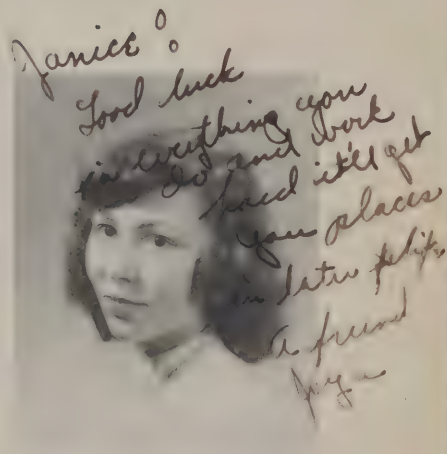 Janice!
Good luck
in everything you
do and work
hard it'll get
you places
in later
A friend